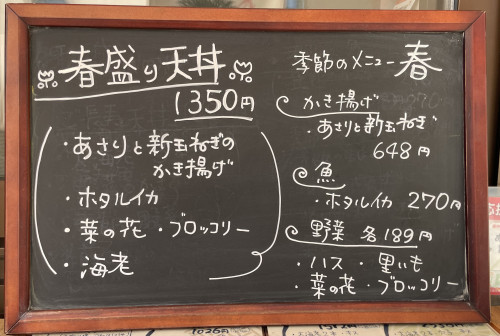 春盛り天丼
1350円
・あさりと新玉ねぎの
かき揚げ
・ホタルイカ
・菜の花・ブロッコリー
・海老
季節のメニュー 春
かき揚げ
・あさりと新玉ねぎ
648円
魚
・ホタルイカ 270円
野菜 各189円
・ハス・里いも
・菜の花・ブロッコリー